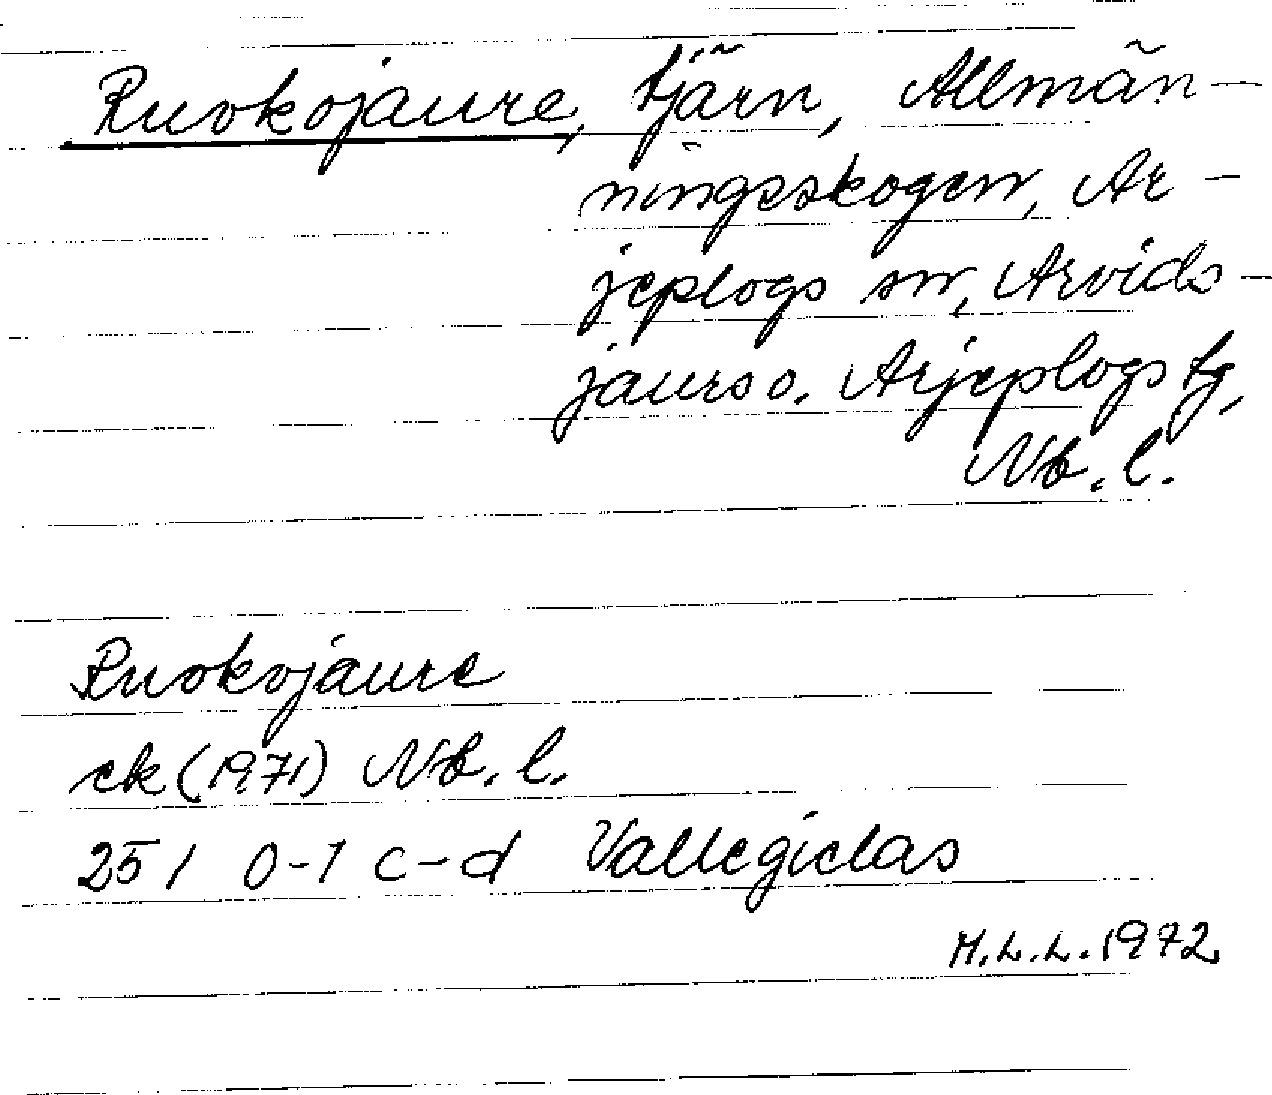 Ruokojaure, tjärn, Allmän-
ningsskogen, Ar-
jeplogs sn, Arvids-
jaurs o. Arjeplogs tg,
Nb. l.
Ruokojaure
ek (1971) Nb. l.
25 I 0-1 c-d Vallegielas
M.L.L. 1972